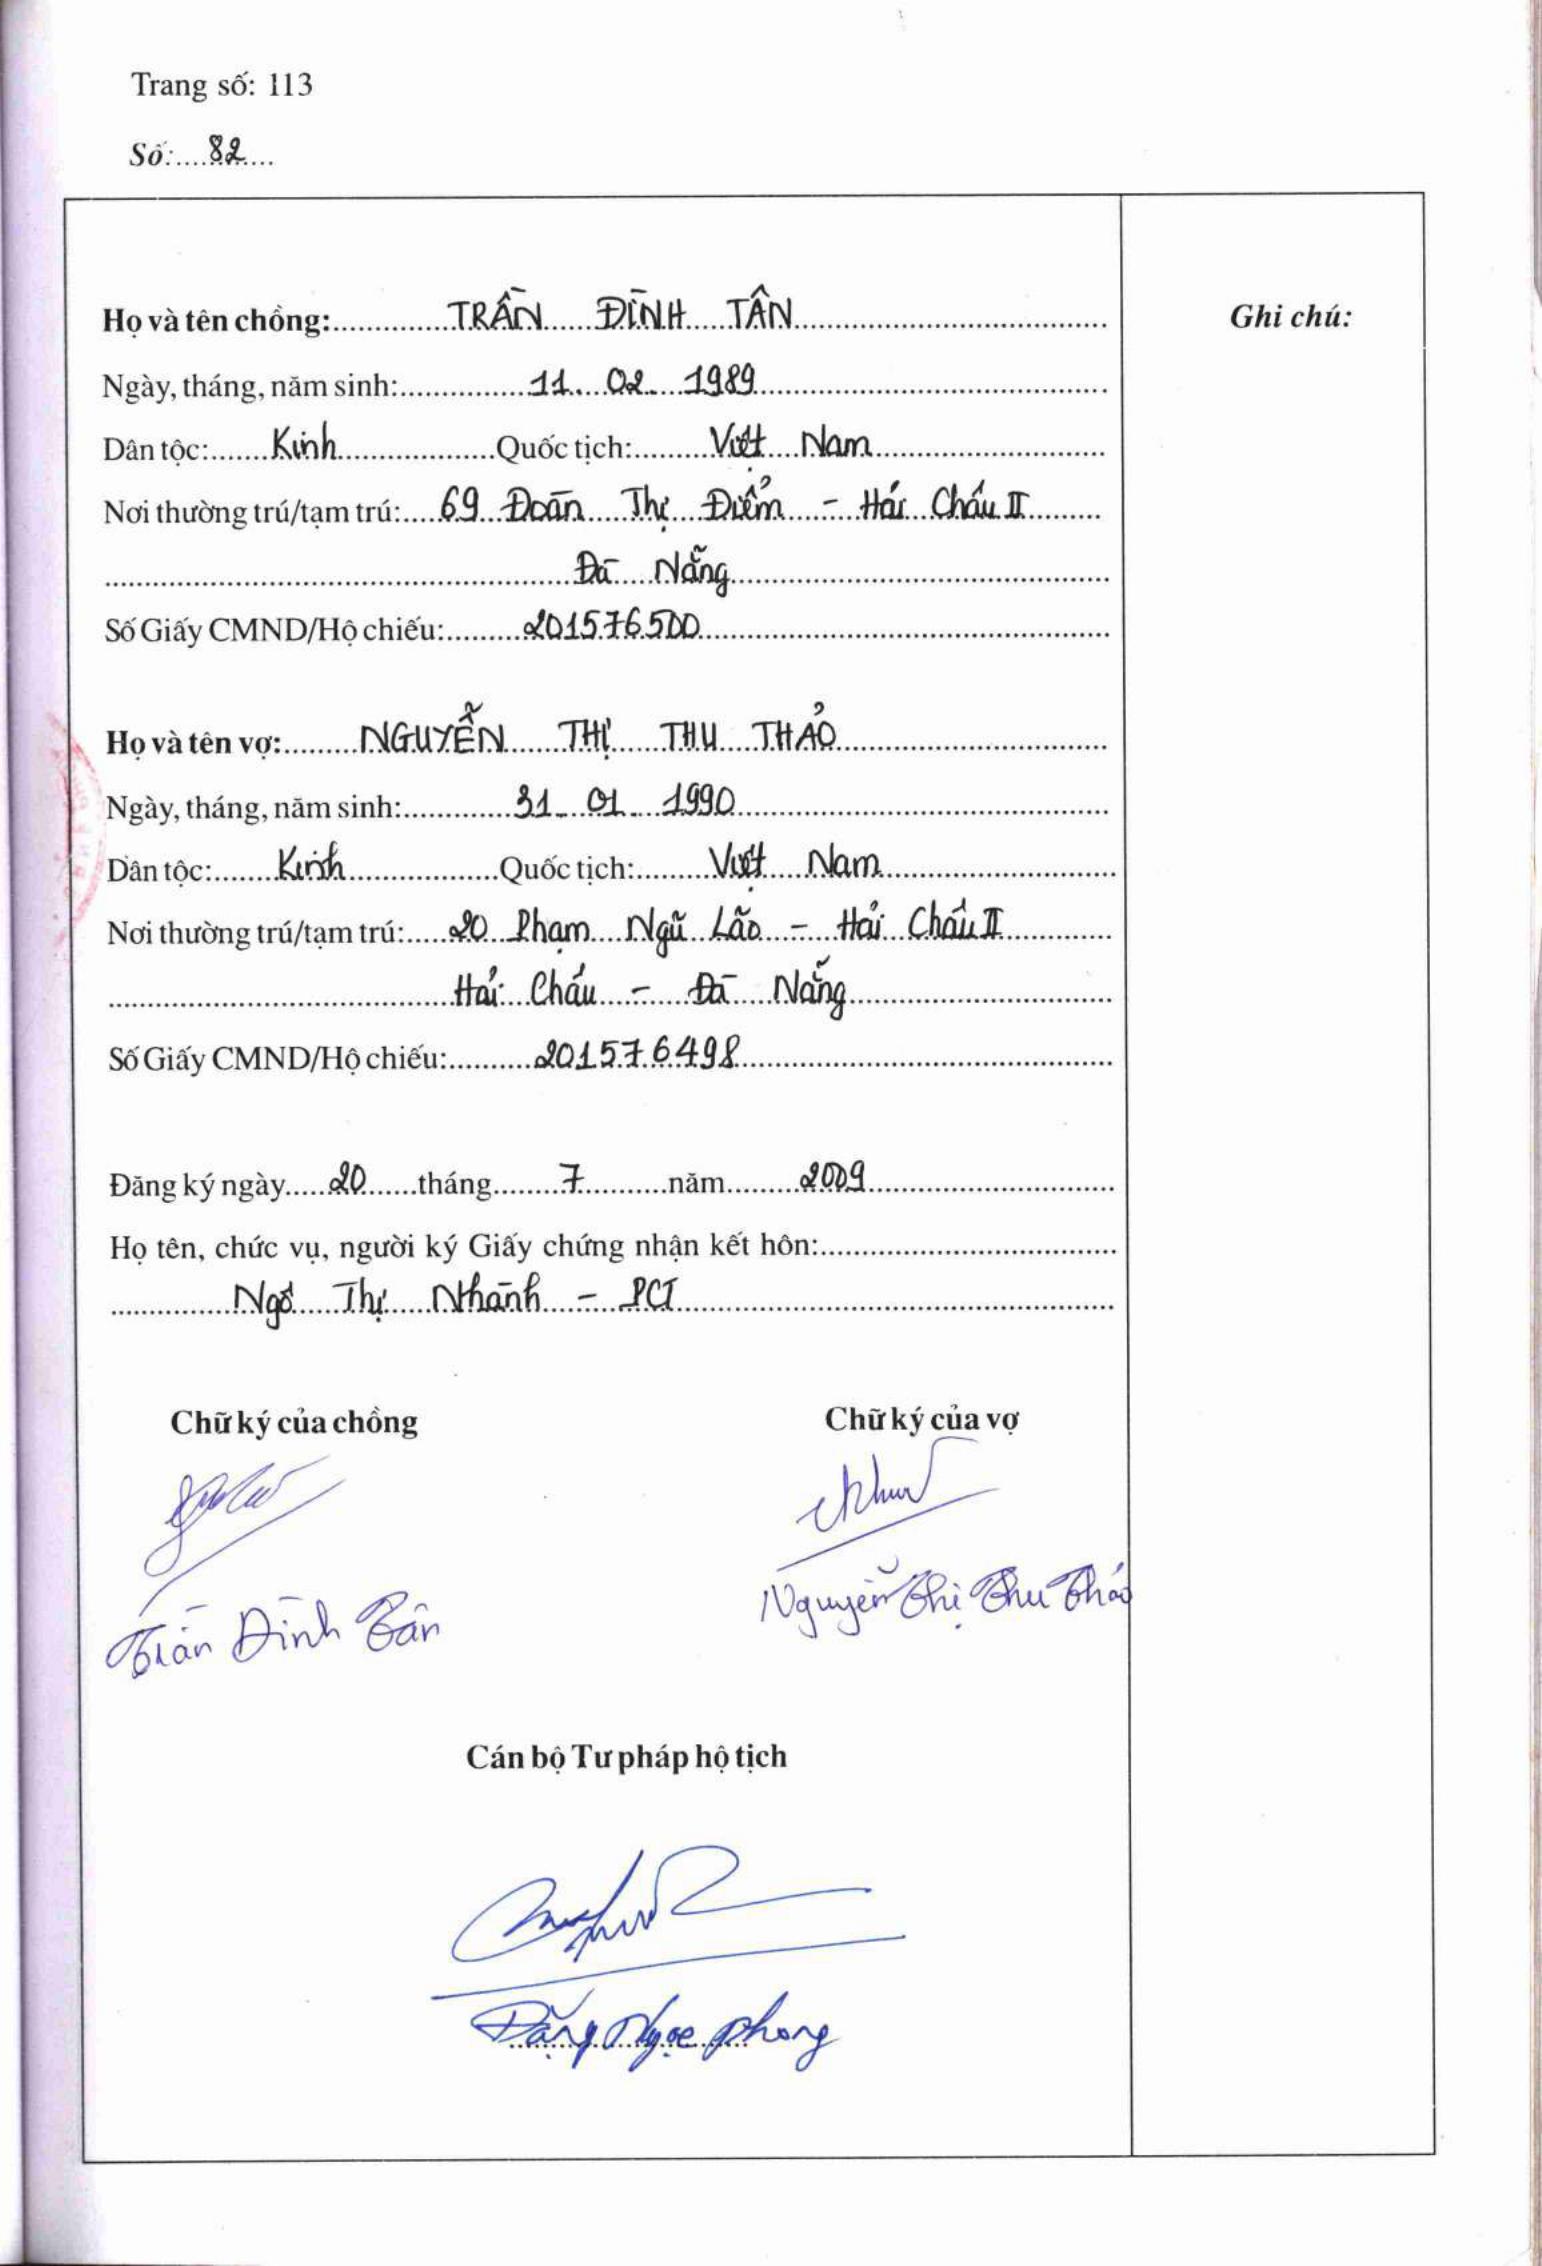 Trang số: 113
Số: 82
Họ và tên chồng: TRẦN ĐÌNH TÂN
Ghi chú:
Ngày, tháng, năm sinh: 11 02 1989
Dân tộc: Kinh Quốc tịch: Việt Nam
Nơi thường trú/tạm trú: 69 Đoàn Thị Điểm - Hải Châu II
Đà Nẵng
Số Giấy CMND/Hộ chiếu: 201576500
Họ và tên vợ: NGUYỄN THỊ THU THẢO
Ngày, tháng, năm sinh: 31 01 1990
Dân tộc: Kinh Quốc tịch: Việt Nam
Nơi thường trú/tạm trú: 20 Phạm Ngũ Lão - Hải Châu II
Hải Châu - Đà Nẵng
Số Giấy CMND/Hộ chiếu: 201576498
Đăng ký ngày 20 tháng 7 năm 2009
Họ tên, chức vụ, người ký Giấy chứng nhận kết hôn:
Ngô Thị Nhành - PCT
Chữ ký của chồng Chữ ký của vợ
Nguyễn Thị Thu Thảo
Trần Đình Tân
Cán bộ Tư pháp hộ tịch
Đặng Ngọc Phong